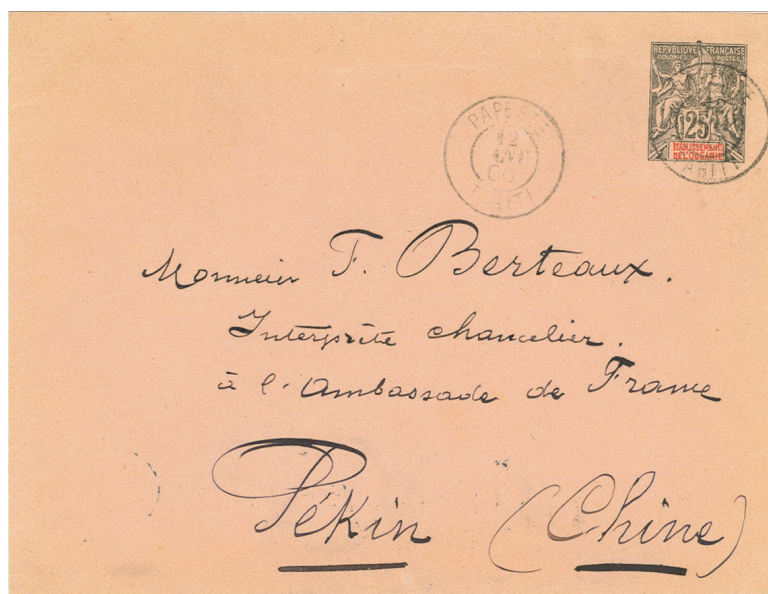 REPVBLIQVE FRANÇAISE
COLONIES POSTES
25
ETABLISSEMENTS
DE L'OCÉANIE
TAHITI
PAPEETE
12
00
TAHITI
Monsieur F. Berteaux.
Interprète chancelier.
à l'Ambassade de France
Pékin (Chine)